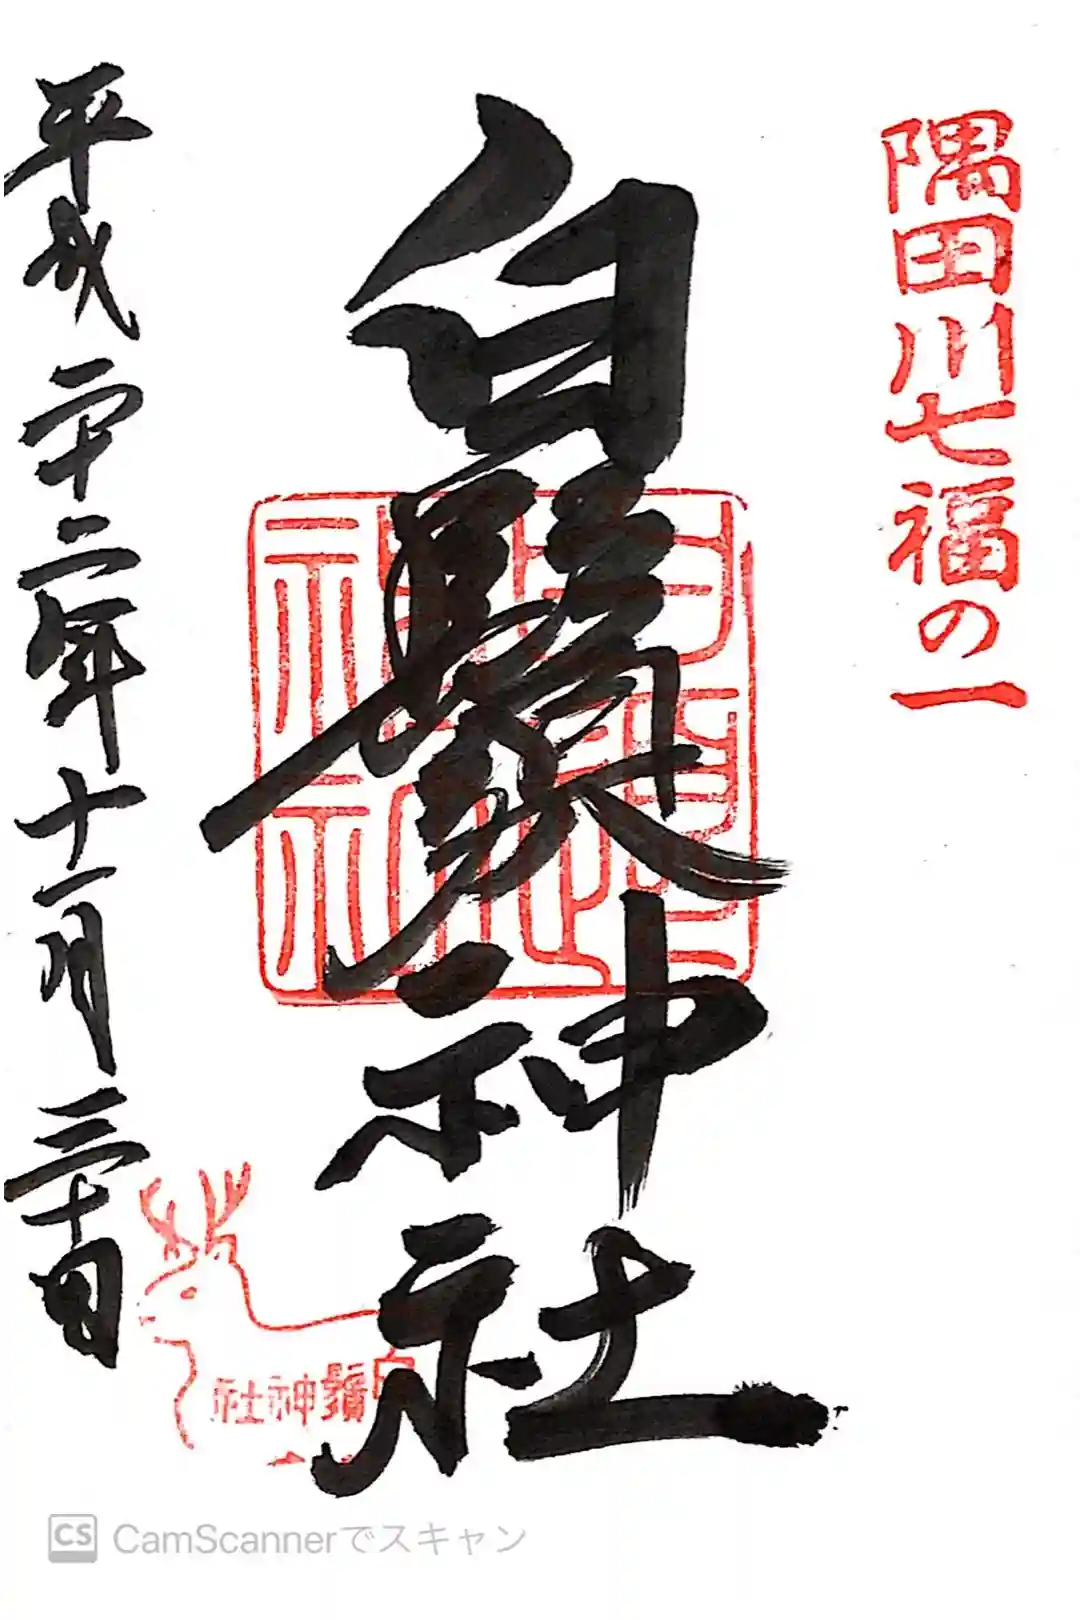 隅田川七福の一
白鬚神社
平成二十二年十一月三十日
白鬚神社
社神鬚白
CS CamScannerでスキャン